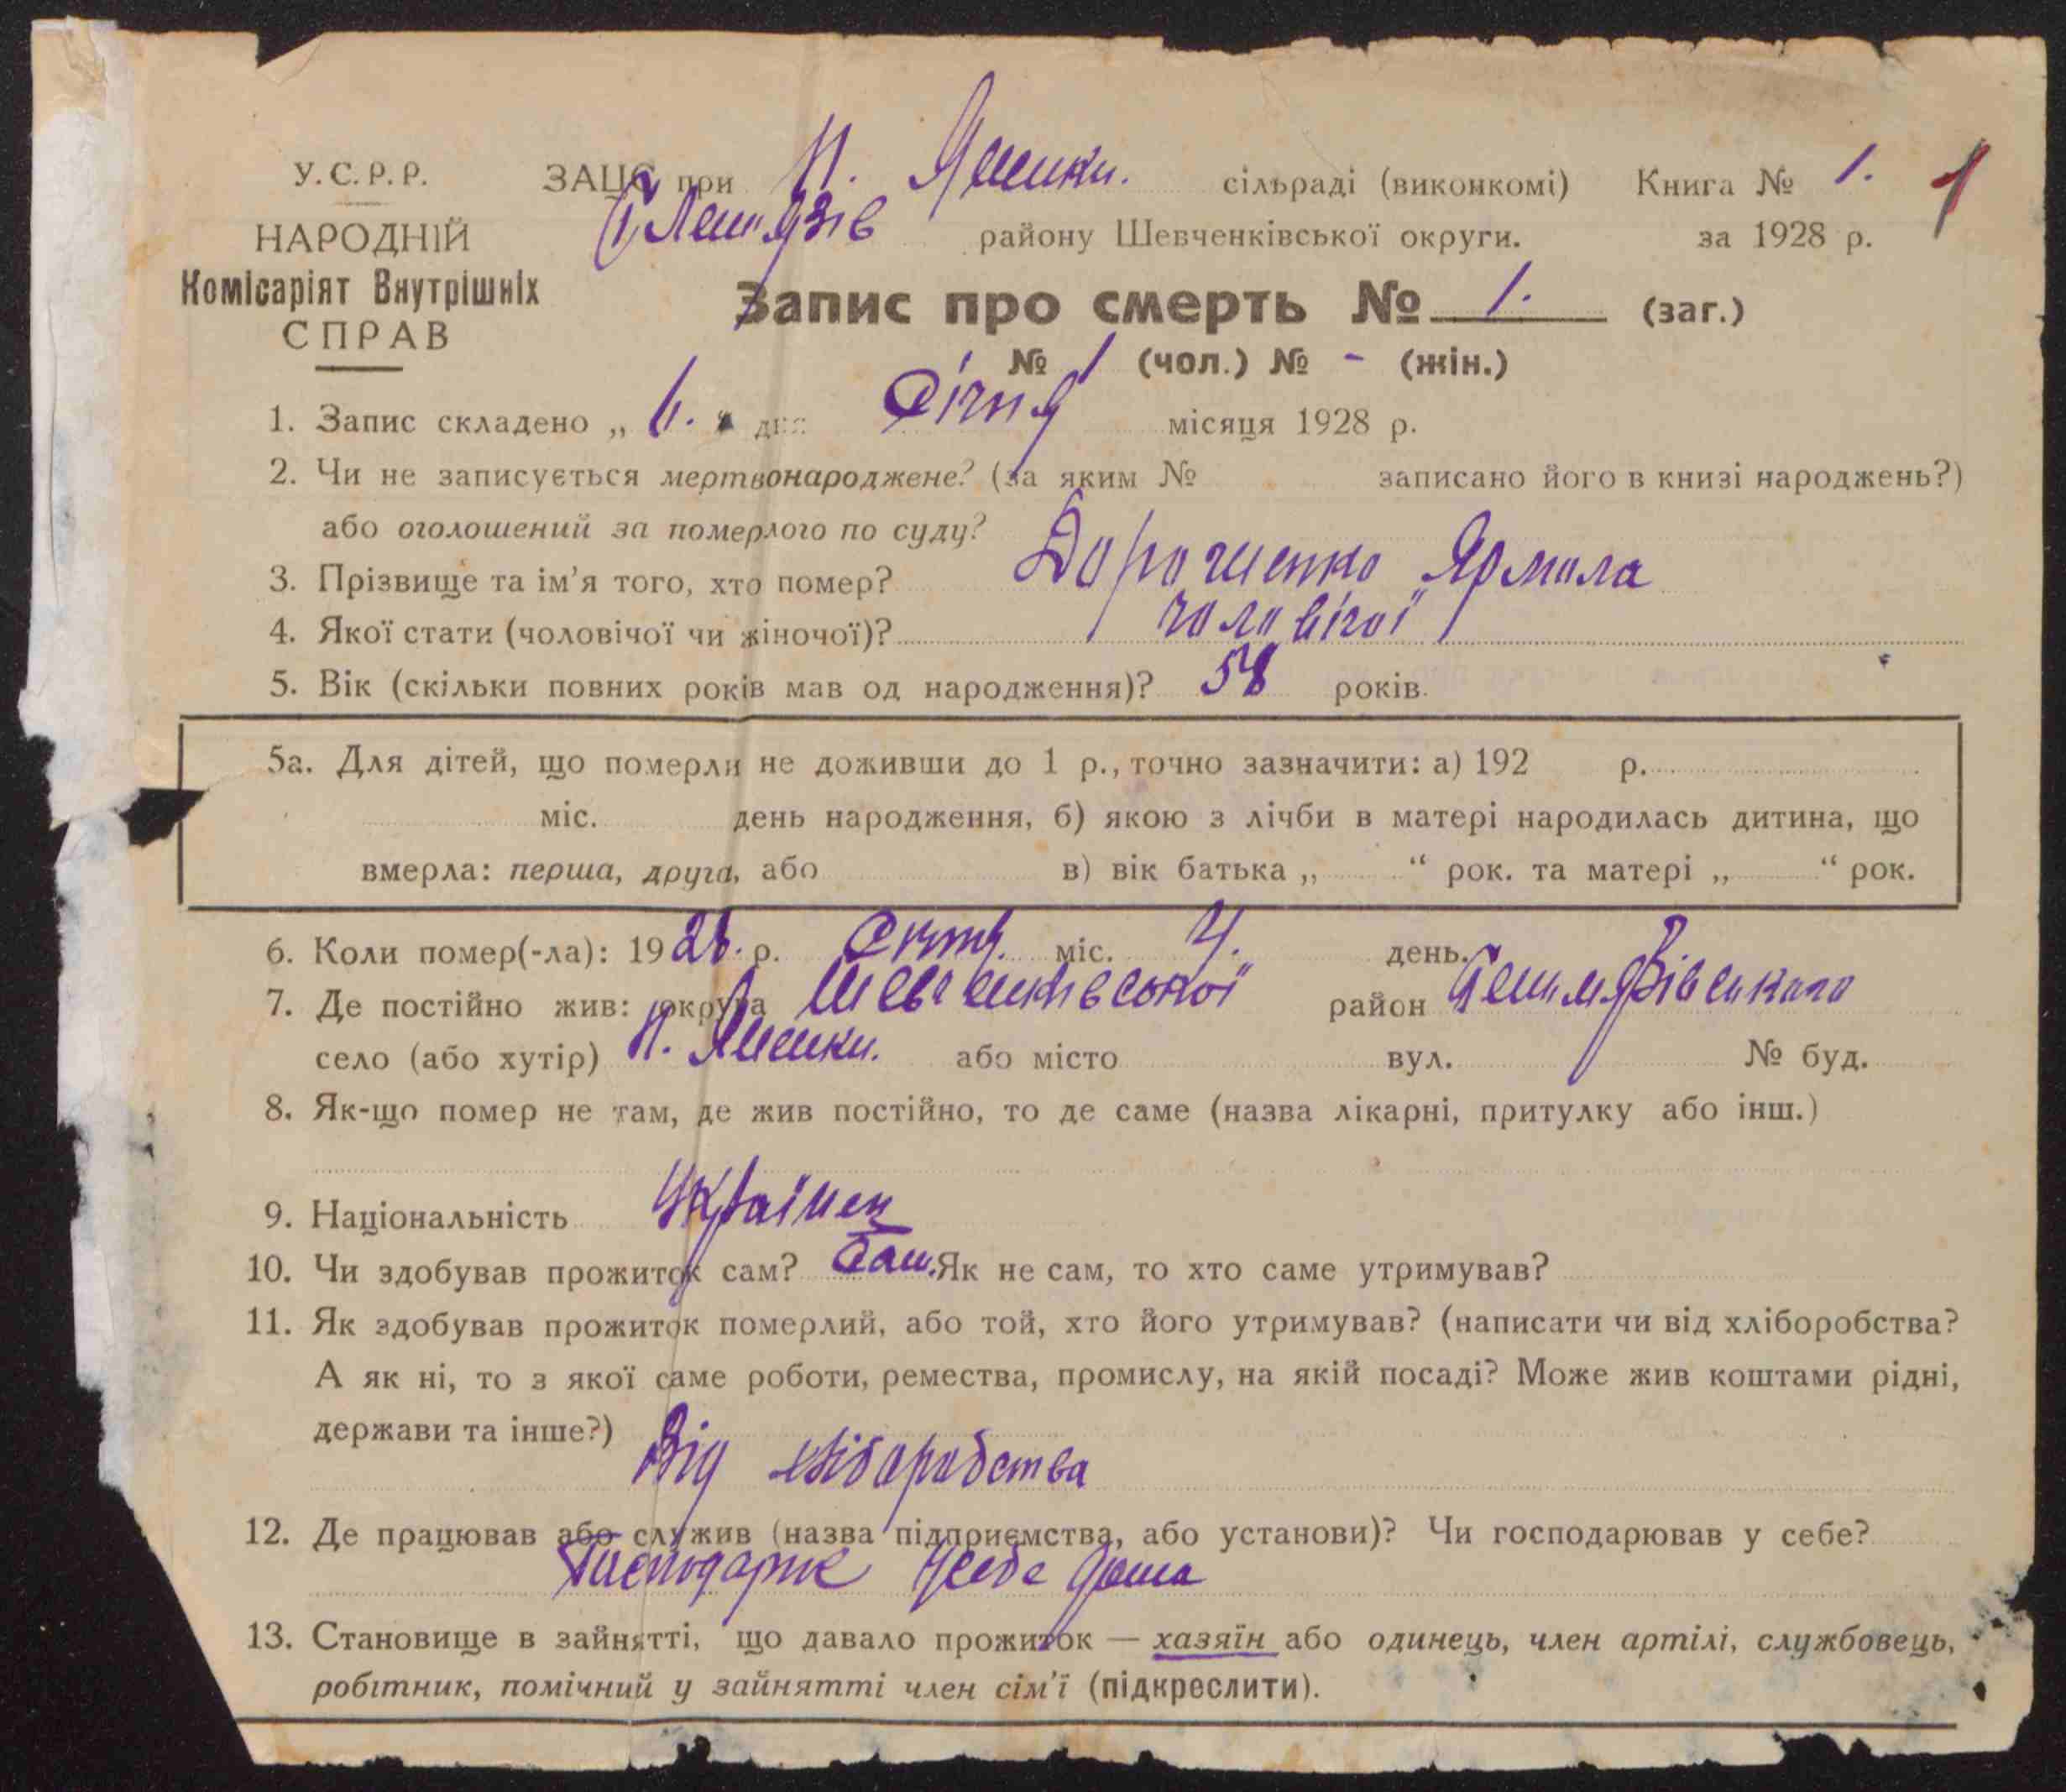 У.С.Р.Р. ЗАЦС при Н. Яшники. сільраді (виконкомі) Книга № 1. 1
НАРОДНІЙ району Шевченківської округи. за 1928 р.
Комісаріят Внутрішніх
СПРАВ
Запис про смерть № 1. (заг.)
№ 1 (чол.) № - (жін.)
1. Запис складено „ 6. " дня Січня місяця 1928 р.
2. Чи не записується мертвонароджене? (за яким № записано його в книзі народжень?)
або оголошений за померлого по суду?
3. Прізвище та ім’я того, хто помер? Дорошенко Ярмола
4. Якої стати (чоловічої чи жіночої)? чоловічої
5. Вік (скільки повних років мав од народження)? 58 років.
5а. Для дітей, що померли не доживши до 1 р., точно зазначити: а) 192 р.
міс. день народження, б) якою з лічби в матері народилась дитина, що
вмерла: перша, друга, або в) вік батька „ “ рок. та матері „ “ рок.
6. Коли помер(-ла): 1928. р. Січня. міс. 4. день.
7. Де постійно жив: округа Шевченківської район
село (або хутір) або місто вул. № буд.
8. Як-що помер не там, де жив постійно, то де саме (назва лікарні, притулку або інш.)
9. Національність Українец
10. Чи здобував прожиток сам? Сам. Як не сам, то хто саме утримував?
11. Як здобував прожиток померлий, або той, хто його утримував? (написати чи від хліборобства?
А як ні, то з якої саме роботи, ремества, промислу, на якій посаді? Може жив коштами рідні,
держави та інше?) Від хліборобства
12. Де працював або служив (назва підприємства, або установи)? Чи господарював у себе?
Господарює у себе дома
13. Становище в зайнятті, що давало прожиток — хазяїн або одинець, член артілі, службовець,
робітник, помічний у зайнятті член сім’ї (підкреслити).